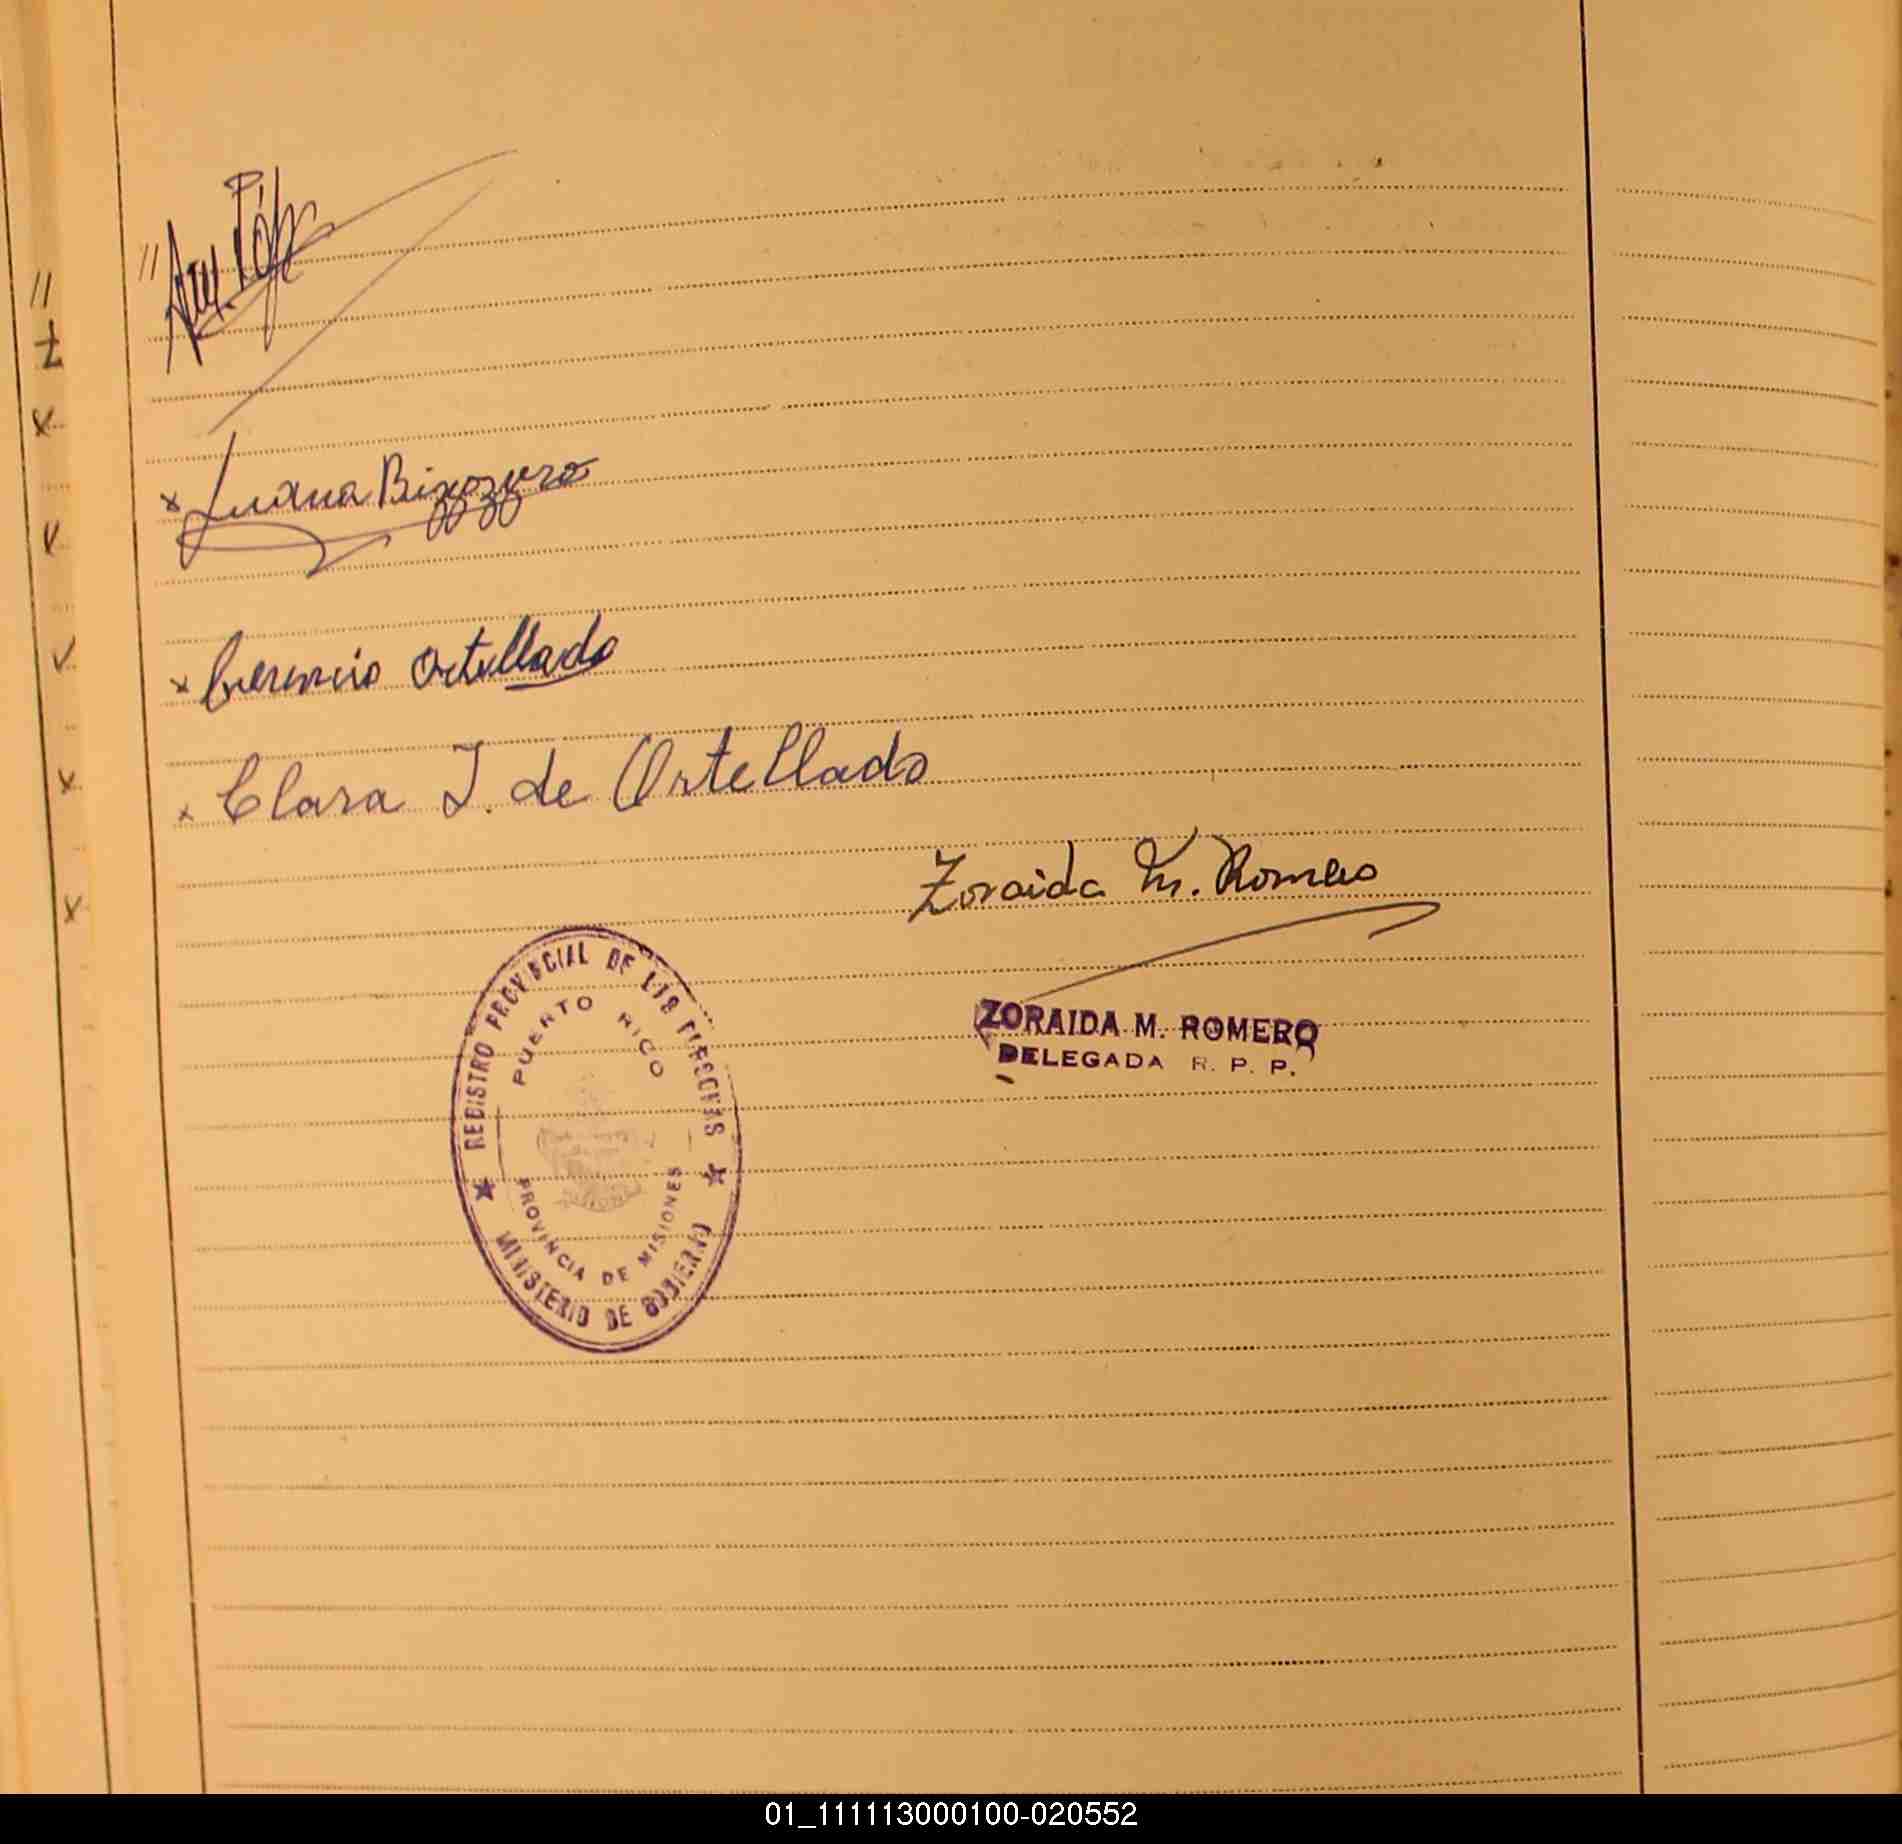 //
x Juana
x Ortellado
x Clara I. de Ortellado
Zoraida M. Romero
REGISTRO PROVINCIAL DE LAS PERSONAS
PUERTO RICO
ZORAIDA M. ROMERO
DELEGADA R. P. P.
PROVINCIA DE MISIONES
MINISTERIO DE GOBIERNO
01_111113000100-020552